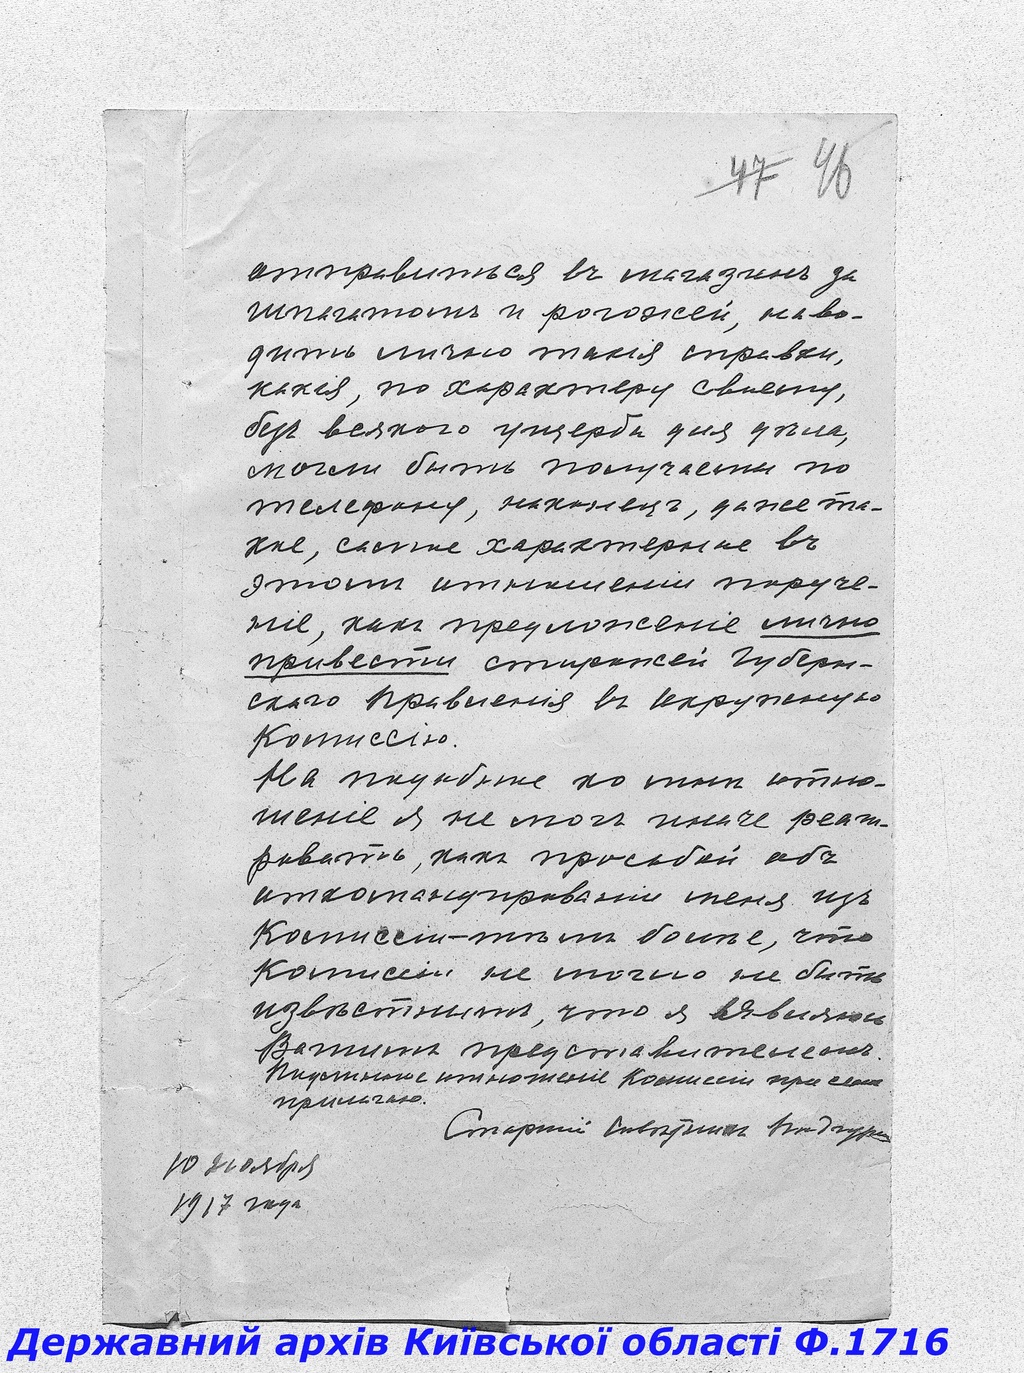 47 46
отправиться въ магазинъ за
шпагатомъ и рогожей, наво-
дить лично такія справки,
какія, по характеру своему,
безъ всякаго ущерба для дѣла,
могли быть получаемы по
телефону, наконецъ, даже та-
кое, самое характерное въ
этомъ отношеніи поруче-
ніе, какъ предложеніе лично
привести сторожей Губерн-
скаго Правленія въ Окружную
Комиссію.
На подобное ко мнѣ отно-
шеніе я не могъ иначе реаги-
ровать, какъ просьбой объ
откомандированіи меня изъ
Комиссіи – тѣмъ болѣе, что
Комиссіи не могло не быть
извѣстнымъ, что я являюсь
Вашимъ представителемъ.
Подлинное отношеніе Комиссіи при семъ
прилагаю.
Старшій Совѣтникъ
10 ноября
1917 года
Державний архів Київської області Ф.1716